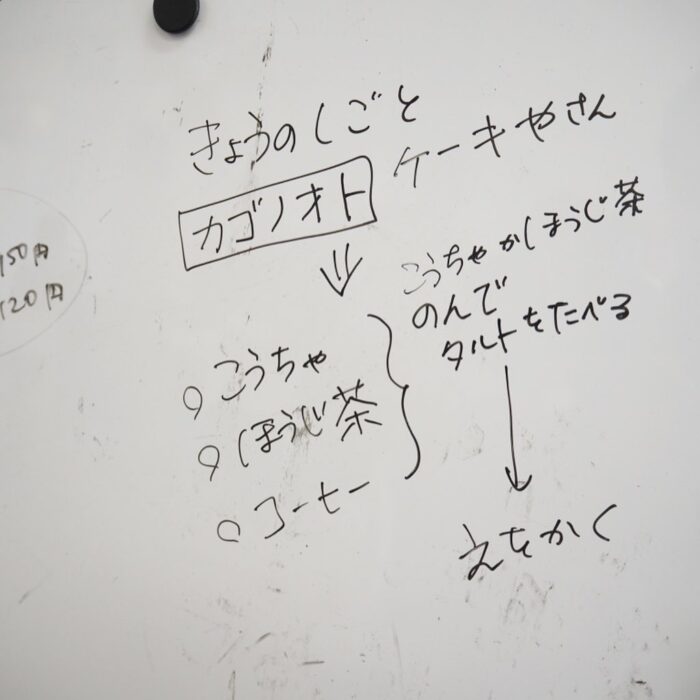 きょうのしごと
カゴノオト ケーキやさん
こうちゃ
ほうじ茶
コーヒー
こうちゃかほうじ茶
のんで
タルトをたべる
えをかく
150円
120円